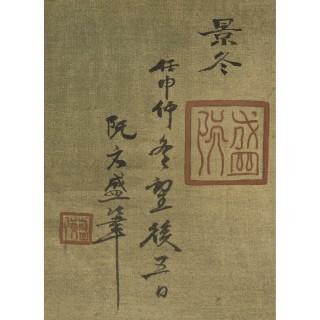 景冬
任申仲冬望後五日
阮文盛筆
盛阮